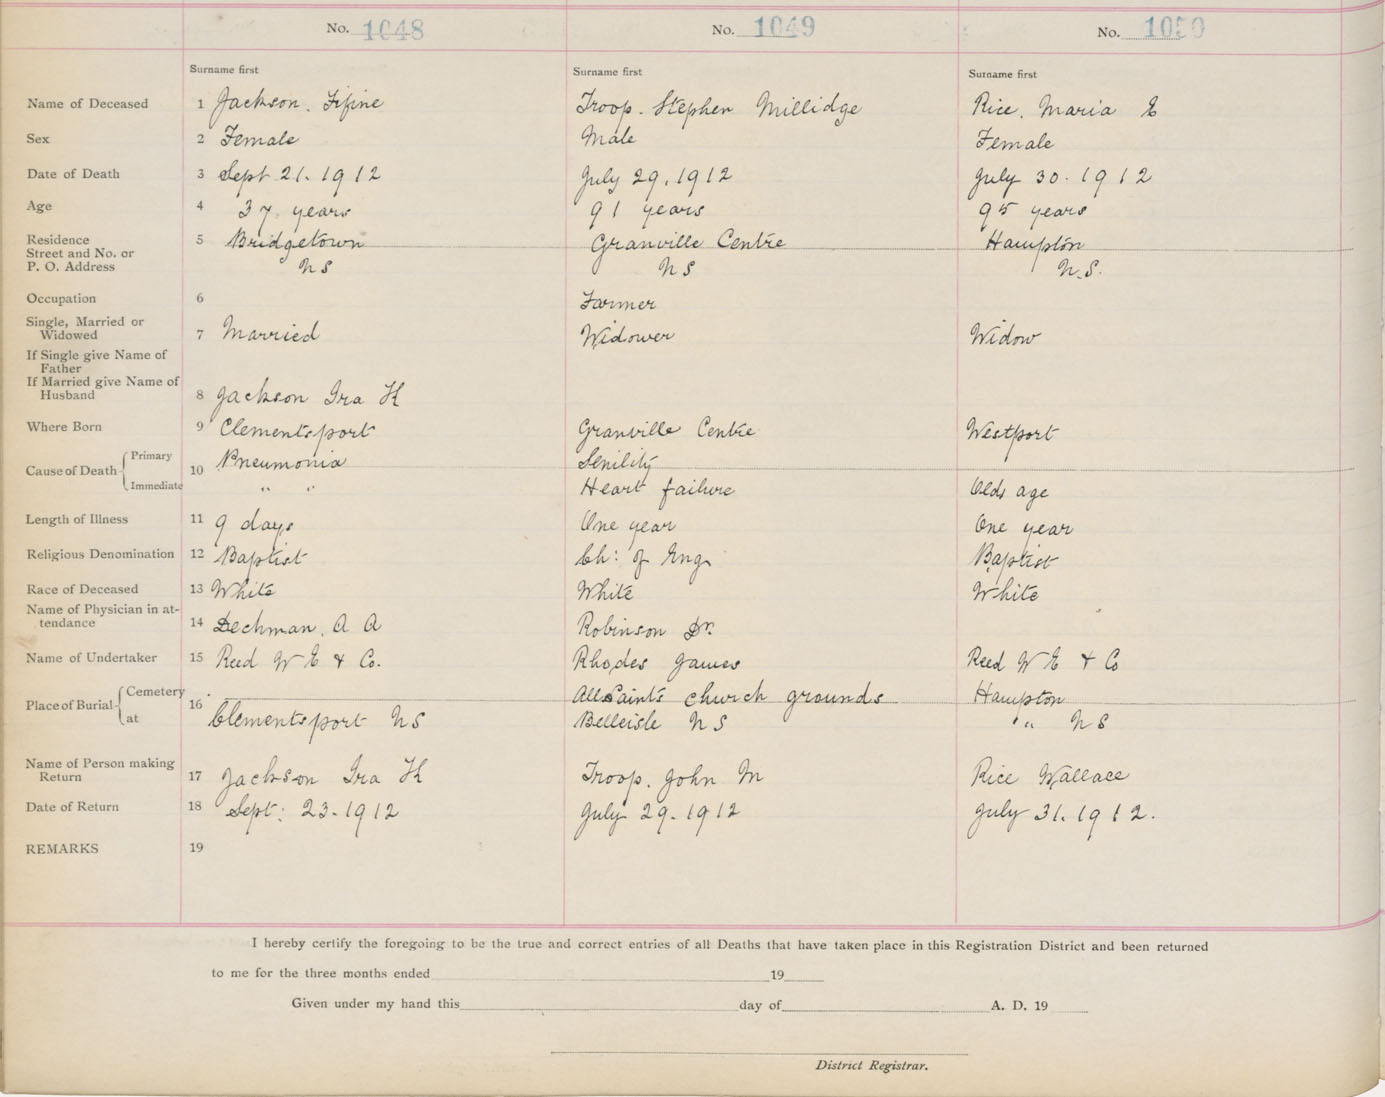 No. 1048 No. 1049 No. 1050
Surname first Surname first Surname first
Name of Deceased 1 Jackson. Fifine Troop. Stephen Millidge Rice. Maria E
Sex 2 Female Male Female
Date of Death 3 Sept 21. 1912 July 29. 1912 July 30. 1912
Age 4 37 years 91 years 95 years
Residence 5 Bridgetown Granville Centre Hampton
Street and No. or
P. O. Address NS NS N.S.
Occupation 6 Farmer
Single, Married or
Widowed 7 Married Widower Widow
If Single give Name of
Father
If Married give Name of
Husband 8 Jackson Ira H
Where Born 9 Clementsport Granville Centre Westport
Cause of Death 10 Primary Pneumonia Senility
Immediate " " Heart failure Olds age
Length of Illness 11 9 days One year One year
Religious Denomination 12 Baptist Ch: of Eng. Baptist
Race of Deceased 13 White White White
Name of Physician in at-
tendance 14 Dechman. A A Robinson Dr.
Name of Undertaker 15 Reed W E & Co. Rhodes James Reed W E & Co
Place of Burial 16 Cemetery All Saints church grounds Hampton
at Clementsport NS Belleisle NS " NS
Name of Person making
Return 17 Jackson Ira H Troop. John M Rice Wallace
Date of Return 18 Sept: 23. 1912 July 29. 1912 July 31. 1912.
REMARKS 19
I hereby certify the foregoing to be the true and correct entries of all Deaths that have taken place in this Registration District and been returned
to me for the three months ended 19
Given under my hand this day of A. D. 19
District Registrar.